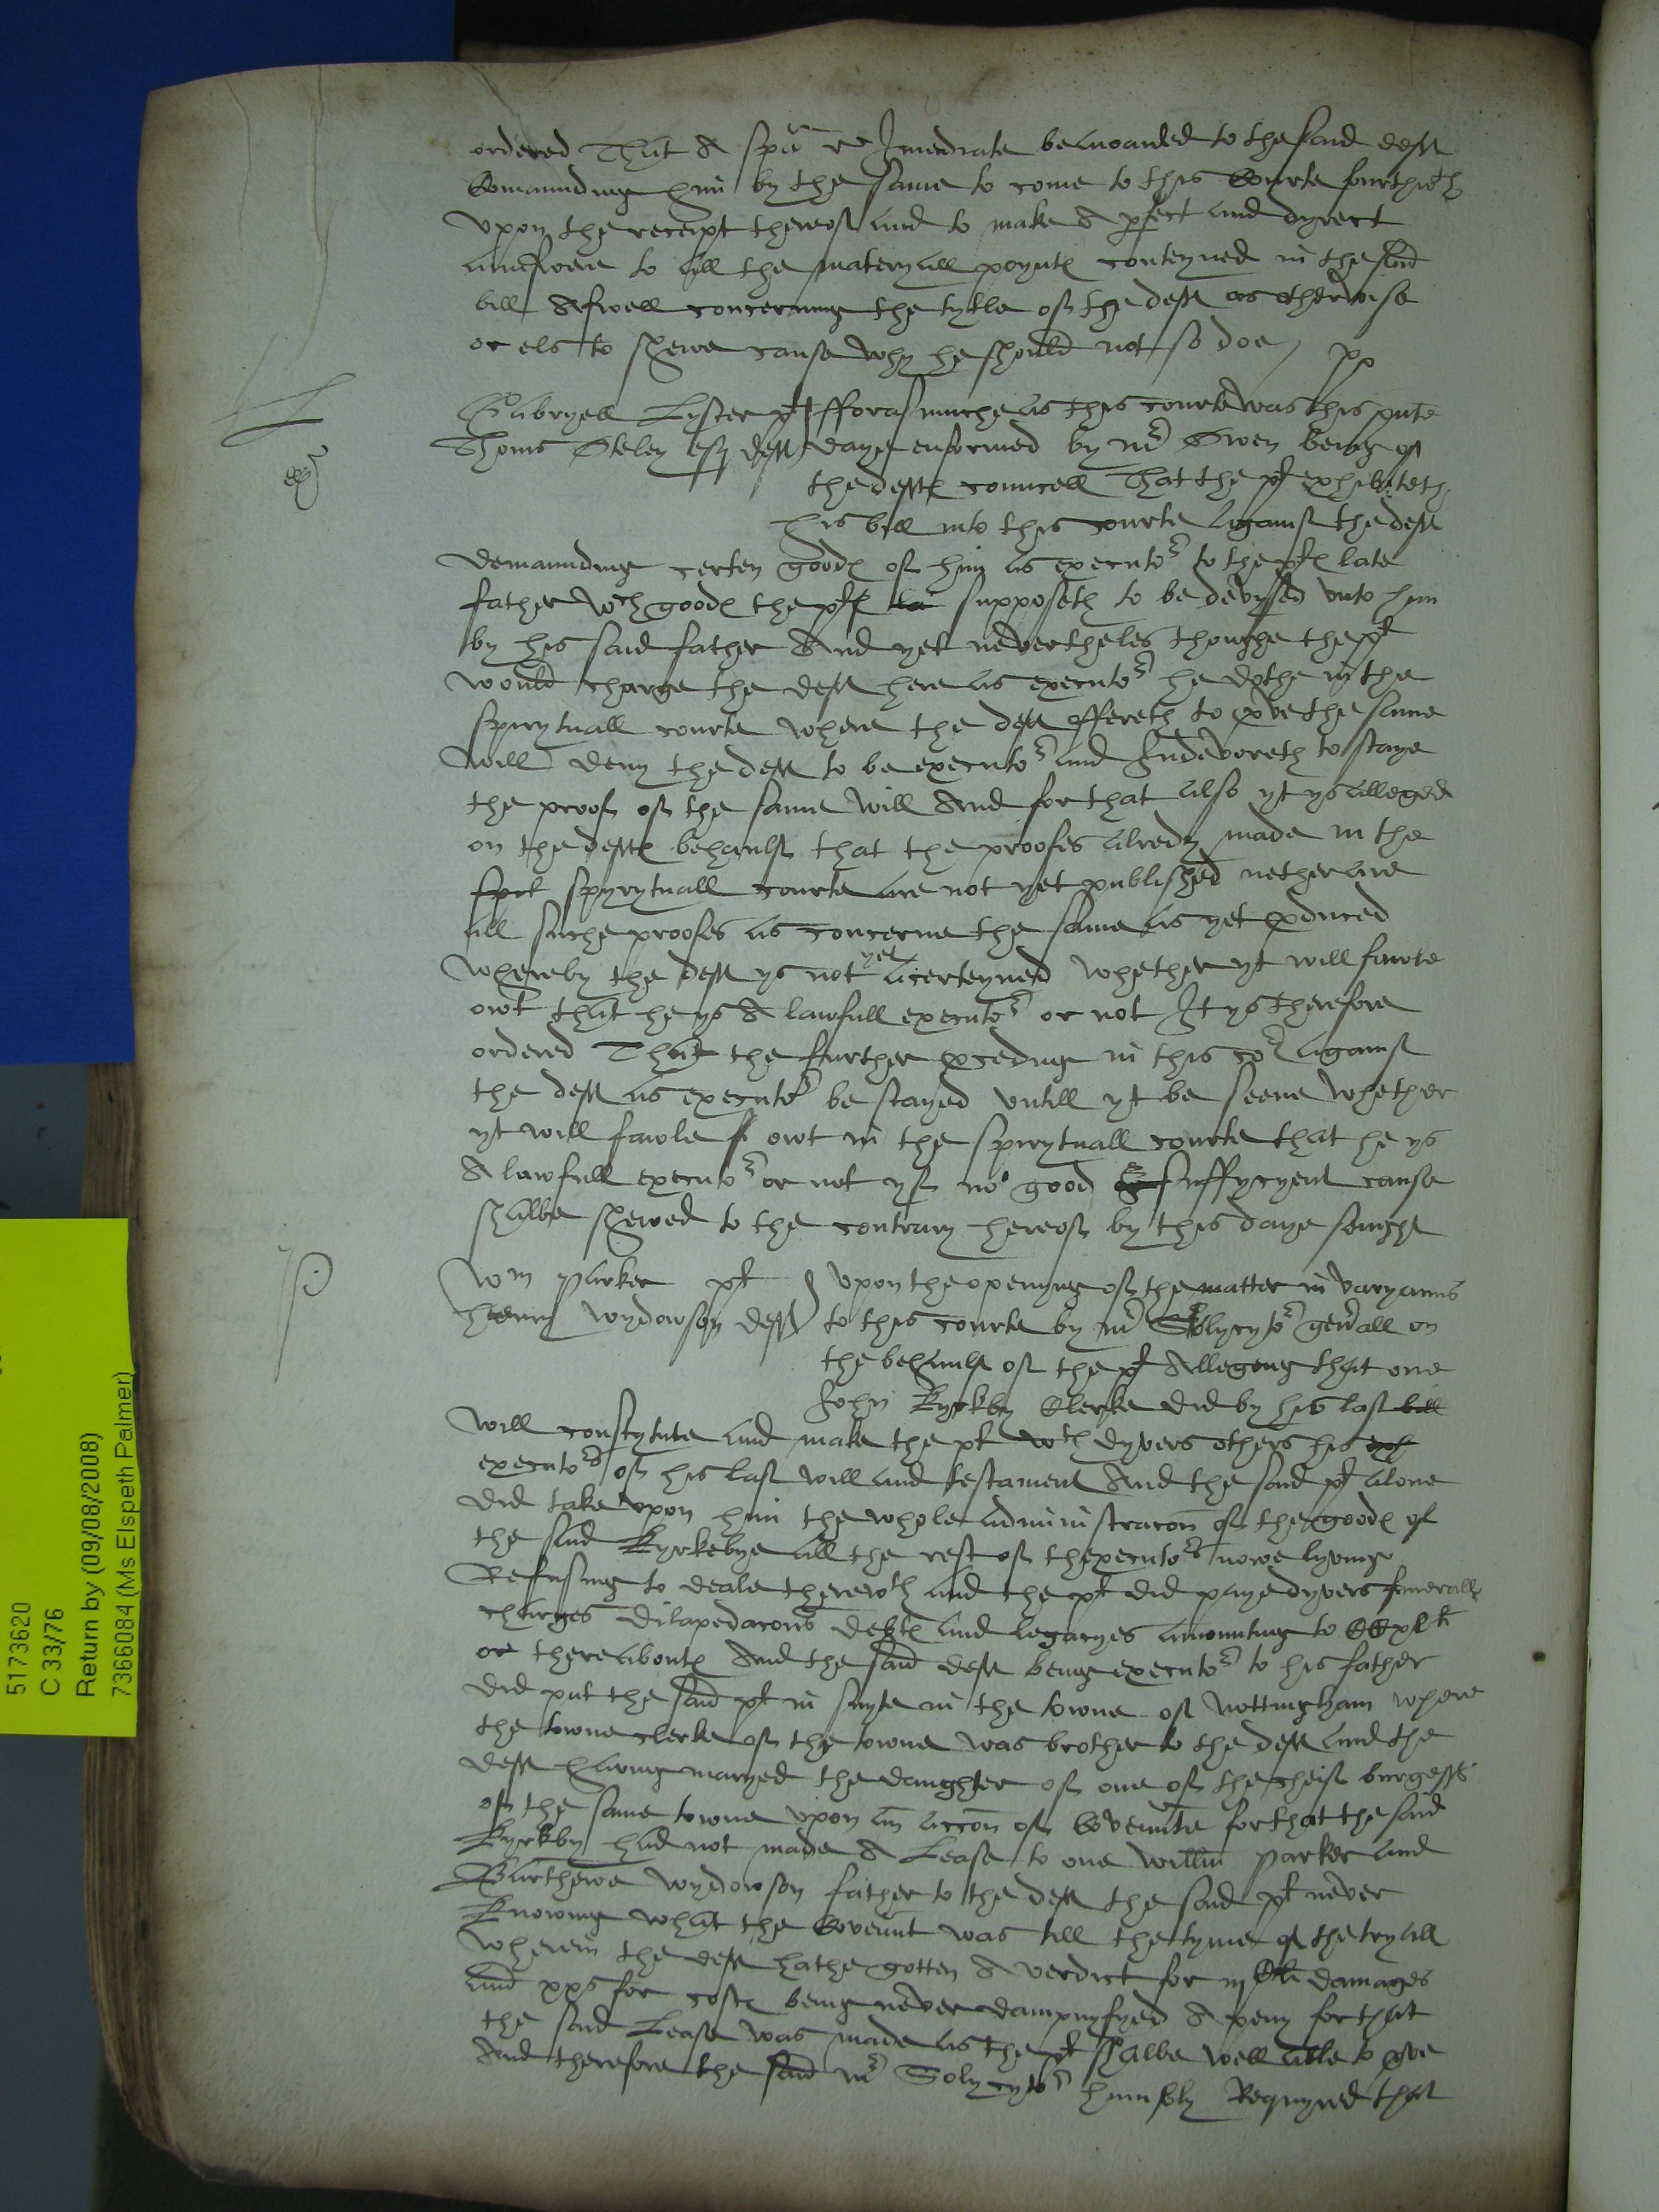 ordered That A spā Imediate be awarded to the said deft
Comaunding him by the same to come to this Courte fourthwth
upon the receipt therof and to make A pfect and dyrect
aunswere to all the materyall poynts conteyned in the said
bill Aswell concerning the tytle of the deft as otherwise
or els to shewe cause why he should not so doe
Gabryell Lyster plt fforasmuche as this courte was this pnte
Thoms esq deft daye enformed by mr Owen being of
the defts councell That the plt exhibiteth
his bill into this courte against the deft
demaunding certen goods of him as executor to the plts late
father wch goods the plt supposeth to be devysed unto him
by his said father And yet nevertheles thoughe the plt
would charge the deft here as executor he dothe in the
spirytuall courte where the deft offereth to pve the same
will deny the deft to be executor and Indevoreth to staye
the proof of the same will And for that also yt ys alleged
on the defts behaulf that the proofes alredy made in the
spyrytuall courte are not yet published nether are
all suche proofes as concerne the same as yet pduced
whereby the deft ys not yet acerteyned whether yt will faule
owt that he ys A lawfull executor or not It ys therefore
ordered That the further pceding in this cor against
the deft as executor be stayed untill yt be seene whether
yt will faule owt in the spirytuall courte that he ys
A lawfull executor or not yf no good suffycyent cause
shalbe shewed to the contrary hereof by this daye sevnight
Wm Parker plt upon the opening of the matter in varyanns
henry wydowson deft to this courte by mr Solycytor genall on
the behaulf of the plt Alleging that one
John Kyrkby Clerke did by his last bill
will constytute and make the plt wth dyvers others his
executors of his last will and testament And the said plt alone
did take upon him the whole administracon of the goods of
the said Kyrkebye all the rest of thexecutors nowe lyving
Refusing to deale therewth and the plt did paye dyvers funerall
charges dilapedacons debts and legacyes amounting to CCxlli
or thereabouts And the said deft being executor to his father
did put the said plt in suyte in the towne of Nottingham where
the towne clerke of the towne was brother to the deft and the
deft having maryed the daughter of one of the cheif burgesses
of the same towne upon an accon of Covennte for that the said
Kyrkby had not made A Lease to one willm Parker and
Barthewe wydowson father to the deft the said plt never
knowing what the Covennt was till the tyme of the tryall
wherein the deft hathe gotten A verdict for damages
and xxs for costs being never dampnyfyed A peny for that
the said Lease was made as the plt shalbe well able to pve
And therefore the said mr Solycytor humbly Requyred that
5173620
C 33/76
Return by (09/08/2008)
7366084 (Ms Elspeth Palmer)